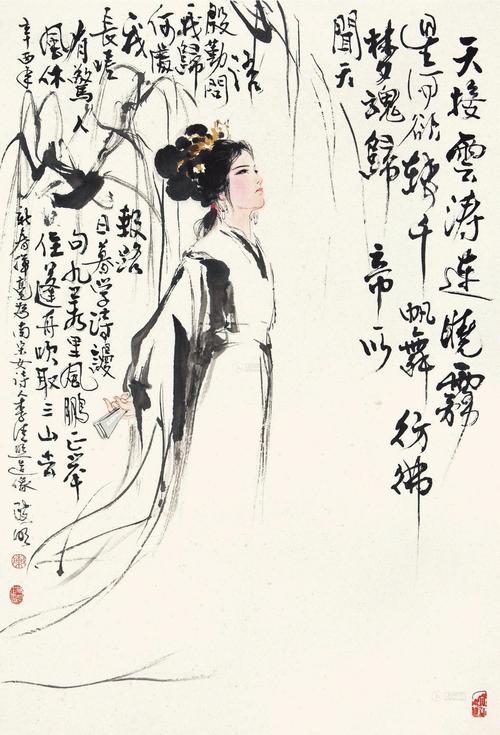 天接雲濤連曉霧
星河欲轉千帆舞彷彿
夢魂歸帝所
聞天
語
殷勤問
我歸
何處
我報路
長嗟日暮學詩謾
有驚人句九萬里風鵬正舉
風休住蓬舟吹取三山去
辛酉年新春揮毫寫南宋女詩人李清照造像